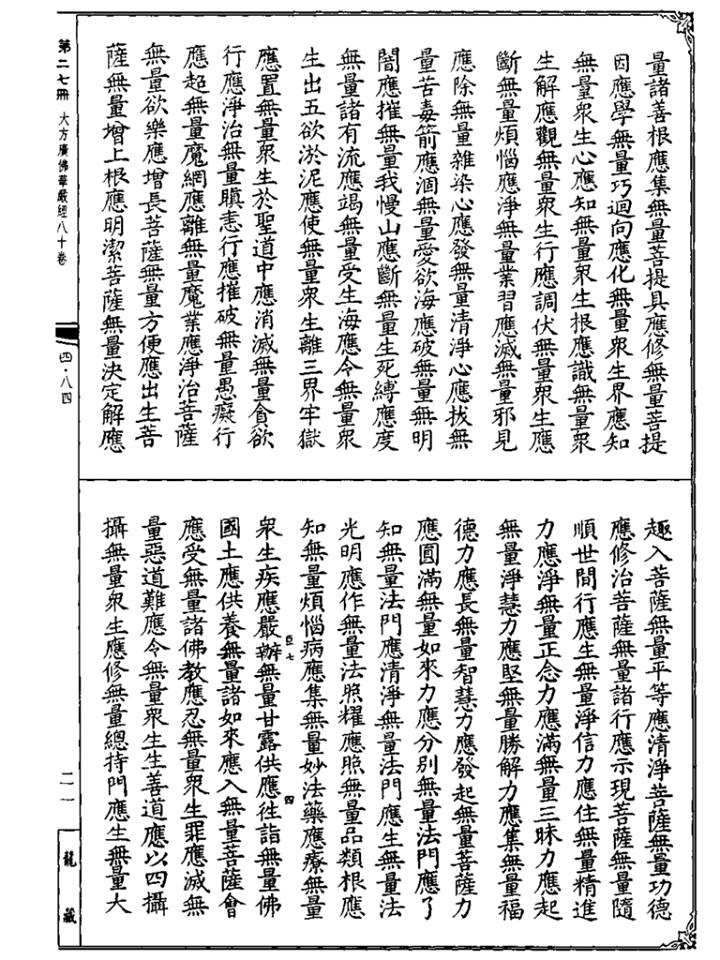 量諸善根應集無量菩提具應修無量菩提
因應學無量巧迴向應化無量衆生界應知
無量衆生心應知無量衆生根應識無量衆
生解應觀無量衆生行應調伏無量衆生應
斷無量煩惱應淨無量業習應滅無量邪見
應除無量雜染心應發無量清淨心應拔無
量苦毒箭應涸無量愛欲海應破無量無明
闇應摧無量我慢山應斷無量生死縛應度
無量諸有流應竭無量受生海應令無量衆
生出五欲淤泥應使無量衆生離三界牢獄
應置無量衆生於聖道中應消滅無量貪欲
行應淨治無量瞋恚行應摧破無量愚癡行
應超無量魔網應離無量魔業應淨治菩薩
無量欲樂應增長菩薩無量方便應出生菩
薩無量增上根應明潔菩薩無量決定解應
趣入菩薩無量平等應清淨菩薩無量功德
應修治菩薩無量諸行應示現菩薩無量隨
順世間行應生無量淨信力應住無量精進
力應淨無量正念力應滿無量三昧力應起
無量淨慧力應堅無量勝解力應集無量福
德力應長無量智慧力應發起無量菩薩力
應圓滿無量如來力應分別無量法門應了
知無量法門應清淨無量法門應生無量法
光明應作無量法照耀應照無量品類根應
知無量煩惱病應集無量妙法藥應療無量
衆生疾應嚴辦無量甘露供應往詣無量佛
國土應供養無量諸如來應入無量菩薩會
應受無量諸佛教應忍無量衆生罪應滅無
量惡道難應令無量衆生生善道應以四攝
攝無量衆生應修無量總持門應生無量大
臣七
四
第二七冊 大方廣佛華嚴經八十卷
四·八四
二一
龍藏